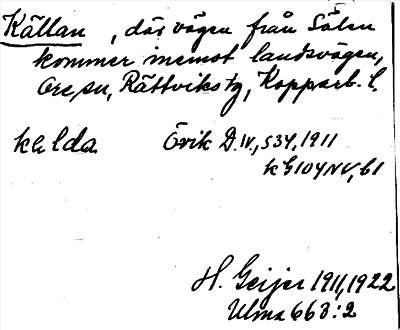 Källan, där vägen från Sälen
kommer inemot landsvägen,
Ore, sn, Rättviks tg, Kopparb. l.
kelda Ovik D. IV, s 34, 1911
k G 104 NV, b1
H. Geijer 1911, 1922
Ulma 663:2